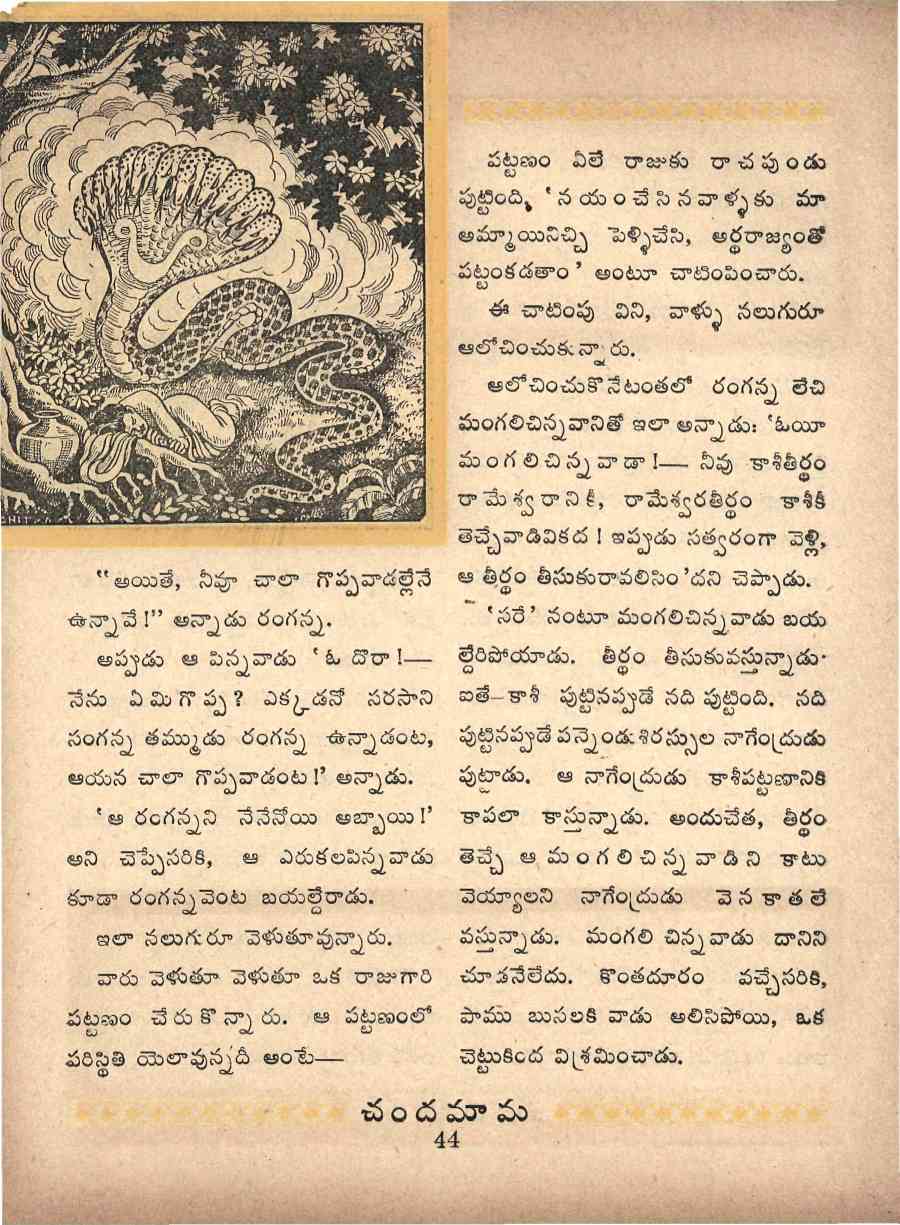 "అయితే, నీవూ చాలా గొప్పవాడల్లేనే
ఉన్నావే!" అన్నాడు రంగన్న.
అప్పుడు ఆ పిన్నవాడు 'ఓ దొరా!—
నేను ఏమిగొప్ప? ఎక్కడనో సరసాని
సంగన్న తమ్ముడు రంగన్న ఉన్నాడంట,
ఆయన చాలా గొప్పవాడంట!' అన్నాడు.
'ఆ రంగన్నని నేనేనోయి అబ్బాయి!'
అని చెప్పేసరికి, ఆ ఎరుకలపిన్నవాడు
కూడా రంగన్నవెంట బయల్దేరాడు.
ఇలా నలుగురూ వెళుతూవున్నారు.
వారు వెళుతూ వెళుతూ ఒక రాజుగారి
పట్టణం చేరుకొన్నారు. ఆ పట్టణంలో
పరిస్థితి యెలావున్నదీ అంటే—
పట్టణం ఏలే రాజుకు రాచపుండు
పుట్టింది, 'నయంచేసినవాళ్ళకు మా
అమ్మాయినిచ్చి పెళ్ళిచేసి, అర్థరాజ్యంతో
పట్టంకడతాం' అంటూ చాటింపించారు.
ఈ చాటింపు విని, వాళ్ళు నలుగురూ
ఆలోచించుకున్నారు.
ఆలోచించుకొనేటంతలో రంగన్న లేచి
మంగలిచిన్నవానితో ఇలా అన్నాడు: 'ఓయీ
మంగలిచిన్నవాడా!— నీవు కాశీతీర్థం
రామేశ్వరానికీ, రామేశ్వరతీర్థం కాశీకీ
తెచ్చేవాడివికద! ఇప్పుడు సత్వరంగా వెళ్లి,
ఆ తీర్థం తీసుకురావలిసిం'దని చెప్పాడు.
'సరే' నంటూ మంగలిచిన్నవాడు బయ
ల్దేరిపోయాడు. తీర్థం తీసుకువస్తున్నాడు.
ఐతే—కాశీ పుట్టినప్పుడే నది పుట్టింది. నది
పుట్టినప్పుడే పన్నెండు శిరస్సుల నాగేంద్రుడు
పుట్టాడు. ఆ నాగేంద్రుడు కాశీపట్టణానికి
కాపలా కాస్తున్నాడు. అందుచేత, తీర్థం
తెచ్చే ఆ మంగలిచిన్నవాడిని కాటు
వెయ్యాలని నాగేంద్రుడు వెనకాతలే
వస్తున్నాడు. మంగలి చిన్నవాడు దానిని
చూడనేలేదు. కొంతదూరం వచ్చేసరికి,
పాము బుసలకి వాడు అలిసిపోయి, ఒక
చెట్టుకింద విశ్రమించాడు.
చందమామ
44